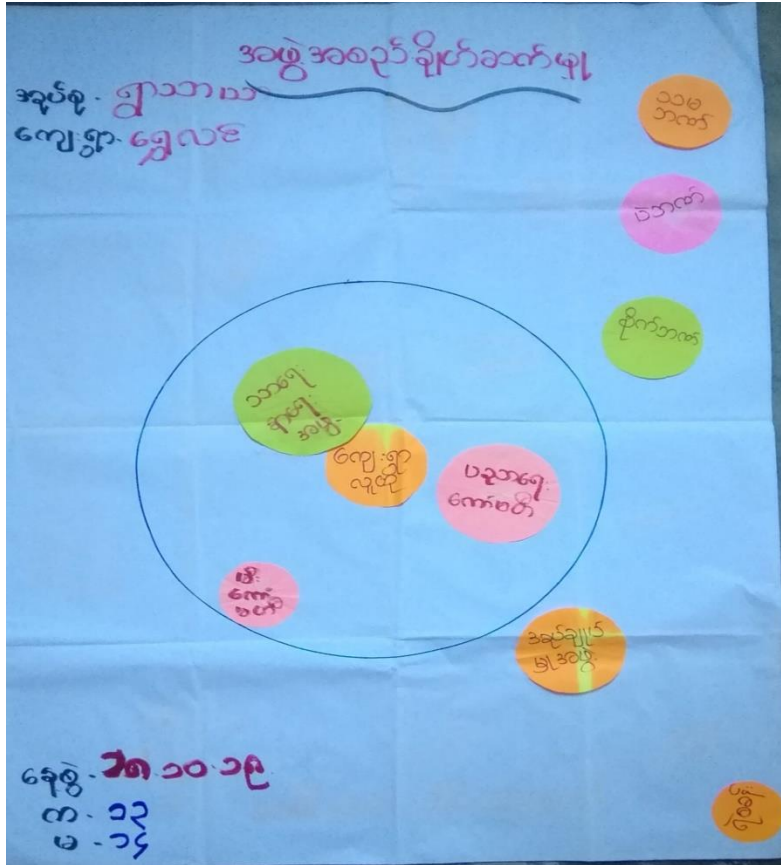 အဖွဲ့အစည်းချိတ်ဆက်မှု
အုပ်စု - ရွာသာယာ
ကျေးရွာ - ရွှေလင်
သမ
ဘဏ်
မဲဘဏ်
စိုက်ဘဏ်
သာရေး
နာရေး
အဖွဲ့
ကျေးရွာ
လူထု
ပညာရေး
ကော်မတီ
မီး
ကော်
မတီ
အုပ်ချုပ်
မှုအဖွဲ့
နေ့စွဲ - ၁၈.၁၀.၁၉
က - ၁၃
မ - ၁၄